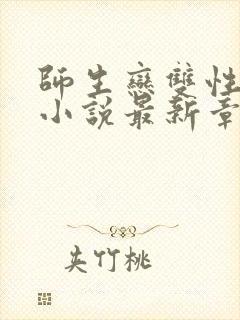 師生戀雙性
小說最新章
夹竹桃